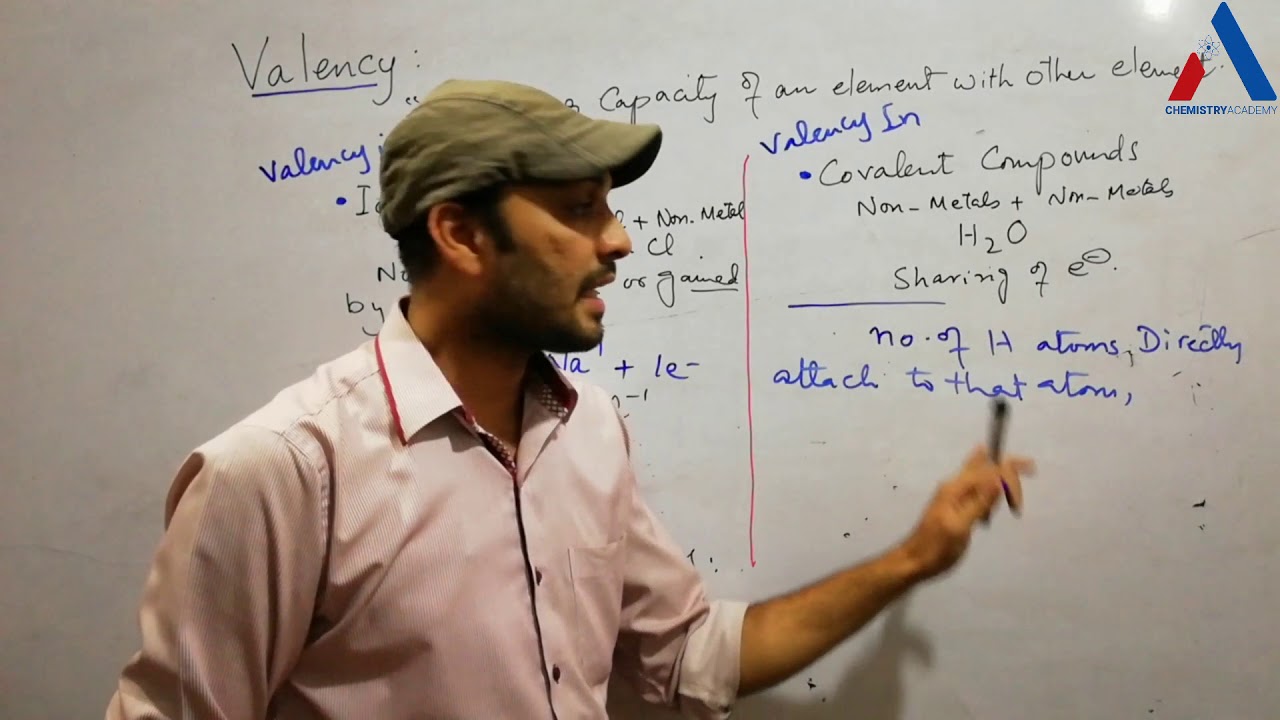 Valency:
Capacity of an element with other element.
CHEMISTRYACADEMY
Valency
+ Non-Metal
Cl
or gained
by
+ 1e-
Valency In
• Covalent Compounds
Non-Metals + Non-Metals
H₂O
Sharing of e⊖.
no. of H atoms, Directly
attach to that atom,